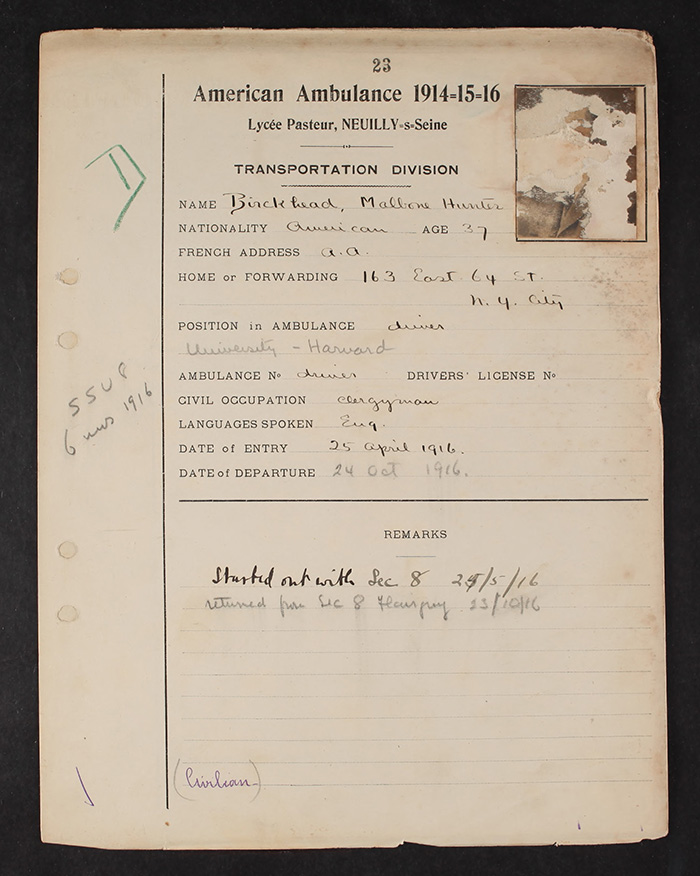 23
American Ambulance 1914=15=16
Lycée Pasteur, NEUILLY=s=Seine
TRANSPORTATION DIVISION
NAME Birckhead, Malbone Hunter
NATIONALITY American AGE 37
FRENCH ADDRESS a.a.
HOME or FORWARDING 163 East 64 St.
N.Y. City
POSITION in AMBULANCE driver
University - Harvard
AMBULANCE No driver DRIVERS' LICENSE No
CIVIL OCCUPATION clergyman
LANGUAGES SPOKEN Eng.
DATE of ENTRY 25 April 1916.
DATE of DEPARTURE 24 Oct 1916.
SSU 8
6 mos 1916
REMARKS
Started out with Sec 8 25/5/16
returned from Sec 8 23/10/16
(Civilean)